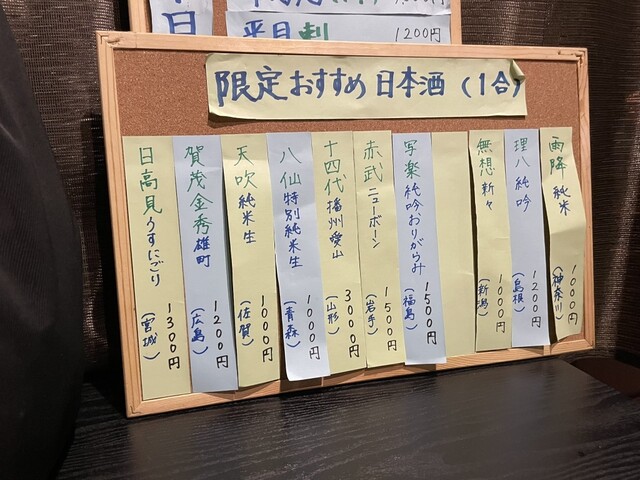 日
平目刺
1200円
限定おすすめ日本酒(1合)
雨降 純米
1000円
(神奈川)
理八 純吟
1200円
(島根)
無想 新々
1000円
(新潟)
写楽 純吟おりがらみ
1500円
(福島)
赤武 ニューボーン
1500円
(岩手)
十四代 播州愛山
3000円
(山形)
八仙 特別純米生
1000円
(青森)
天吹 純米生
1000円
(佐賀)
賀茂金秀 雄町
1200円
(広島)
日高見 うすにごり
1300円
(宮城)